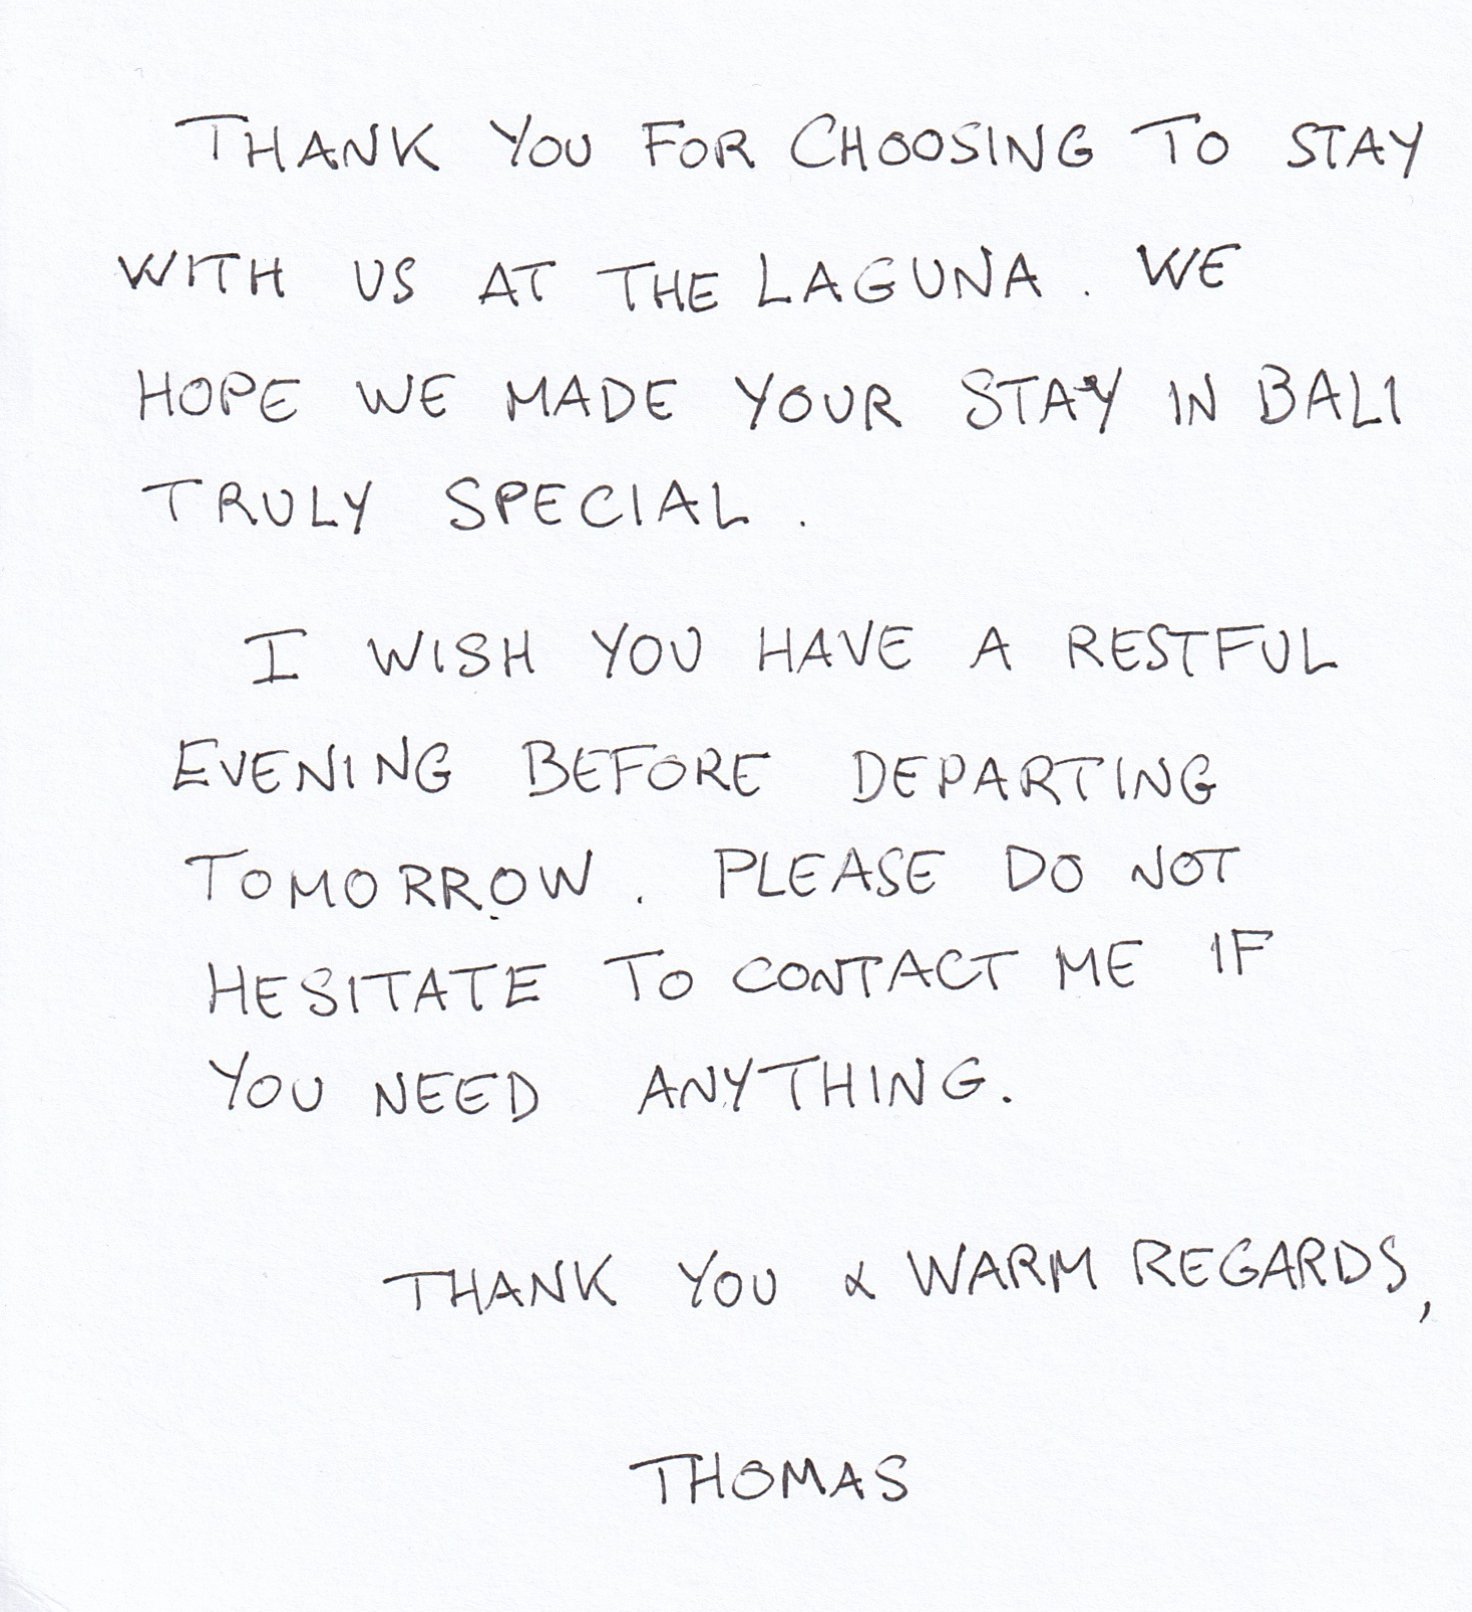 THANK YOU FOR CHOOSING TO STAY
WITH US AT THE LAGUNA. WE
HOPE WE MADE YOUR STAY IN BALI
TRULY SPECIAL.
I WISH YOU HAVE A RESTFUL
EVENING BEFORE DEPARTING
TOMORROW. PLEASE DO NOT
HESITATE TO CONTACT ME IF
YOU NEED ANYTHING.
THANK YOU & WARM REGARDS,
THOMAS